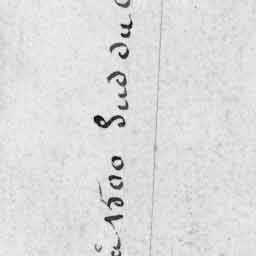 à 1500 Sud du